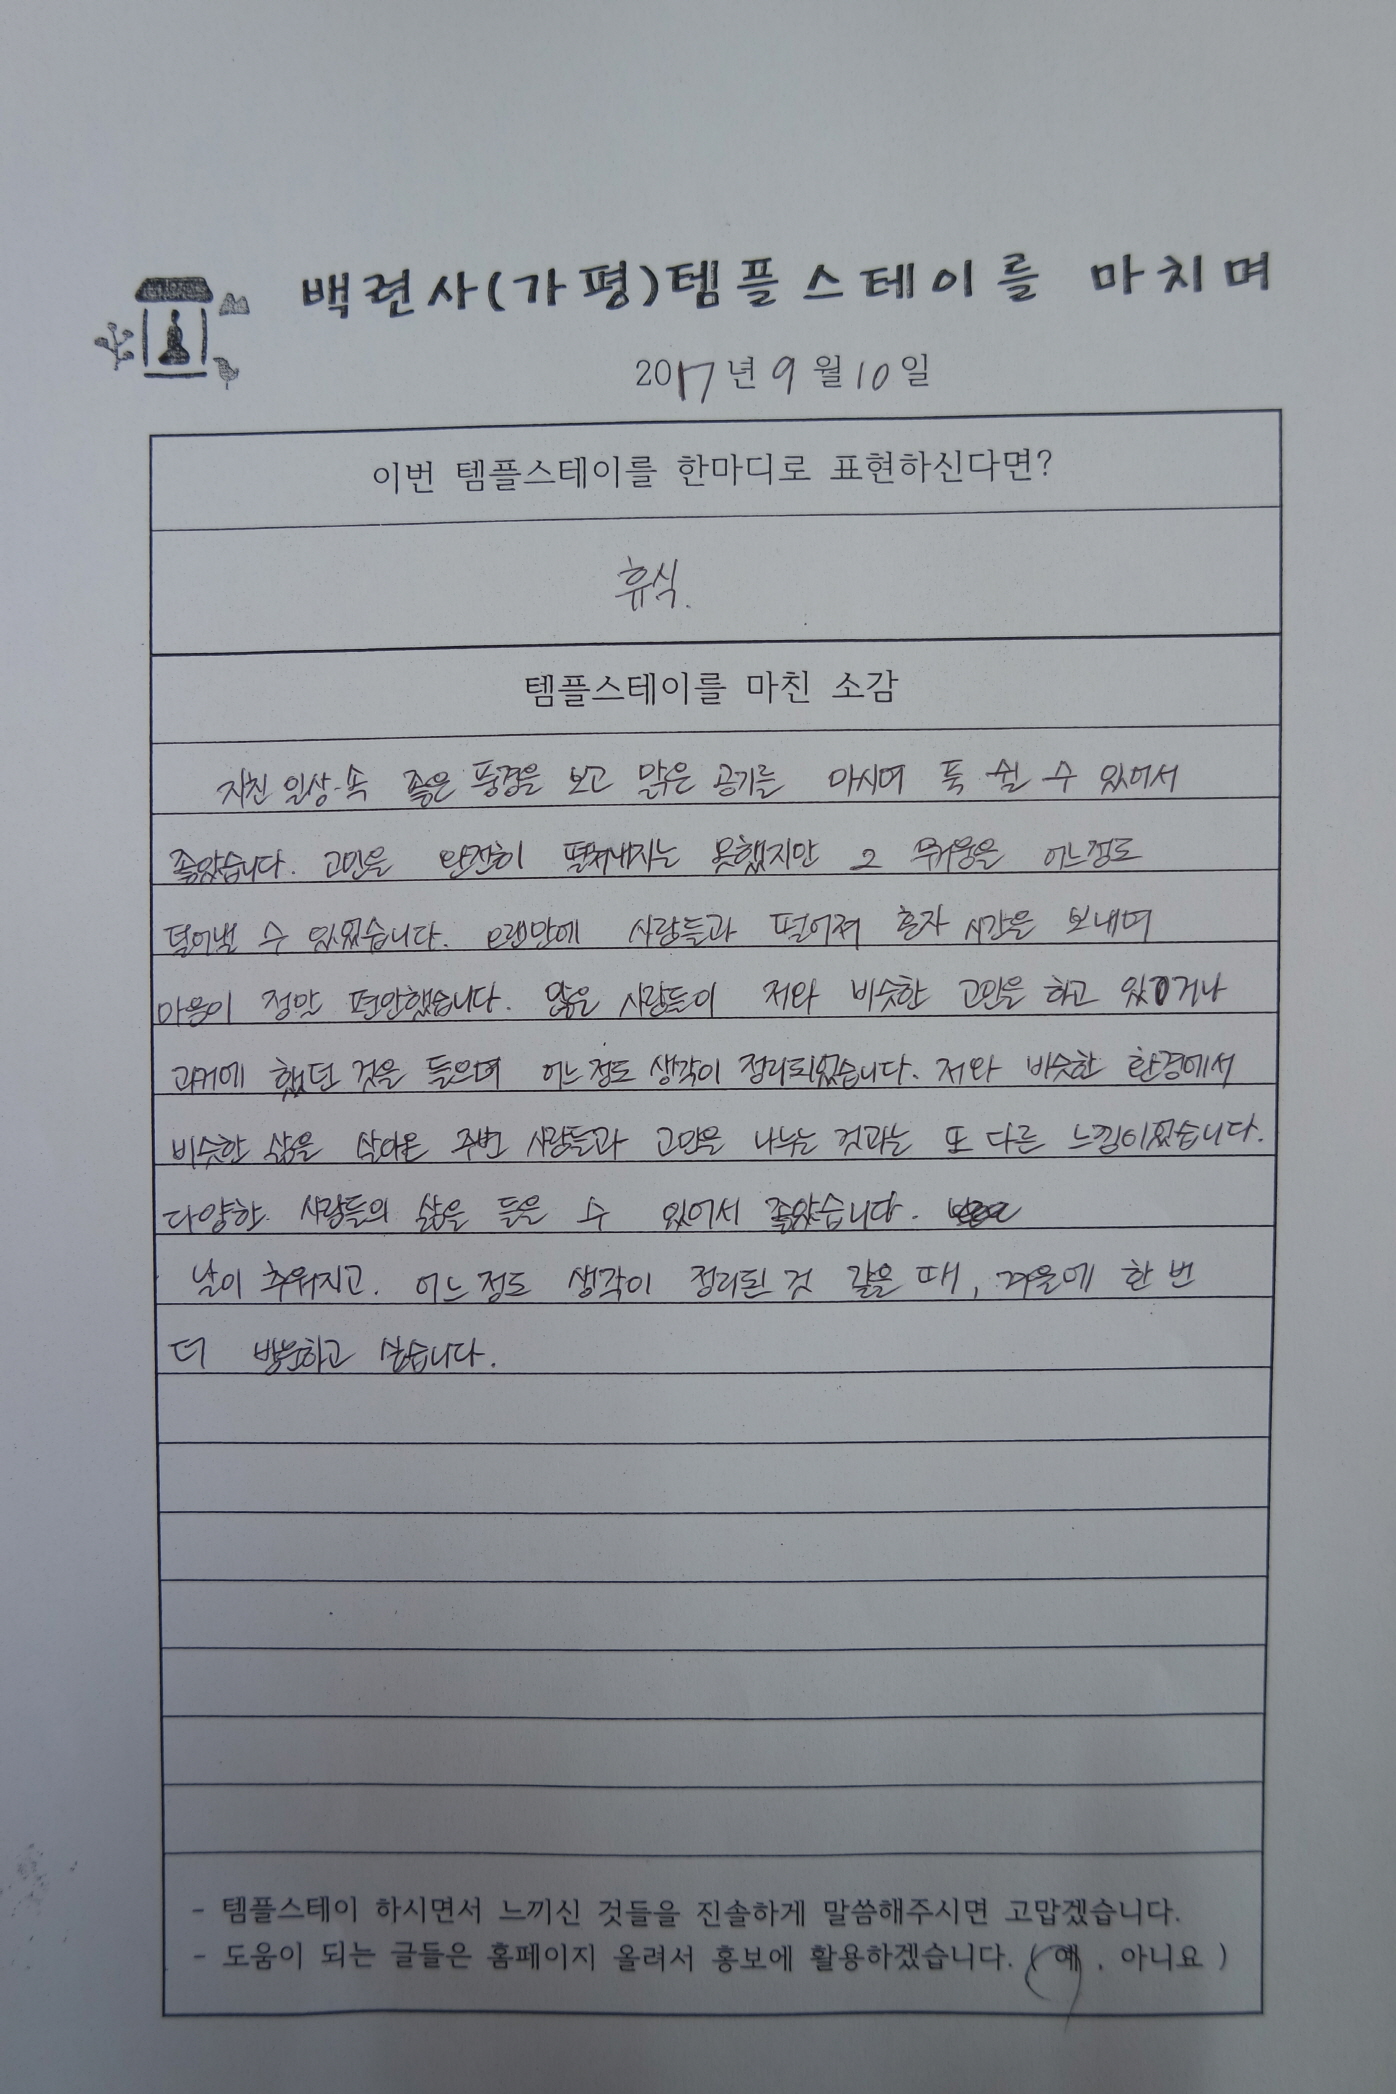 백련사(가평)템플스테이를 마치며
2017년 9월 10일
이번 템플스테이를 한마디로 표현하신다면?
휴식.
템플스테이를 마친 소감
지친 일상 속 좋은 풍경을 보고 맑은 공기를 마시며 푹 쉴 수 있어서
좋았습니다. 고민을 완전히 떨쳐내지는 못했지만 그 무거움을 어느정도
덜어낼 수 있었습니다. 오랜만에 사람들과 떨어져 혼자 시간을 보내며
마음이 정말 편안했습니다. 많은 사람들이 저와 비슷한 고민을 하고 있거나
과거에 했던 것을 들으며 어느정도 생각이 정리되었습니다. 저와 비슷한 환경에서
비슷한 삶을 살아온 주변 사람들과 고민을 나누는 것과는 또 다른 느낌이었습니다.
다양한 사람들의 삶을 들을 수 있어서 좋았습니다.
날이 추워지고. 어느정도 생각이 정리된 것 같을 때, 겨울에 한 번
더 방문하고 싶습니다.
- 템플스테이 하시면서 느끼신 것들을 진솔하게 말씀해주시면 고맙겠습니다.
- 도움이 되는 글들은 홈페이지 올려서 홍보에 활용하겠습니다. ( 예 , 아니요 )